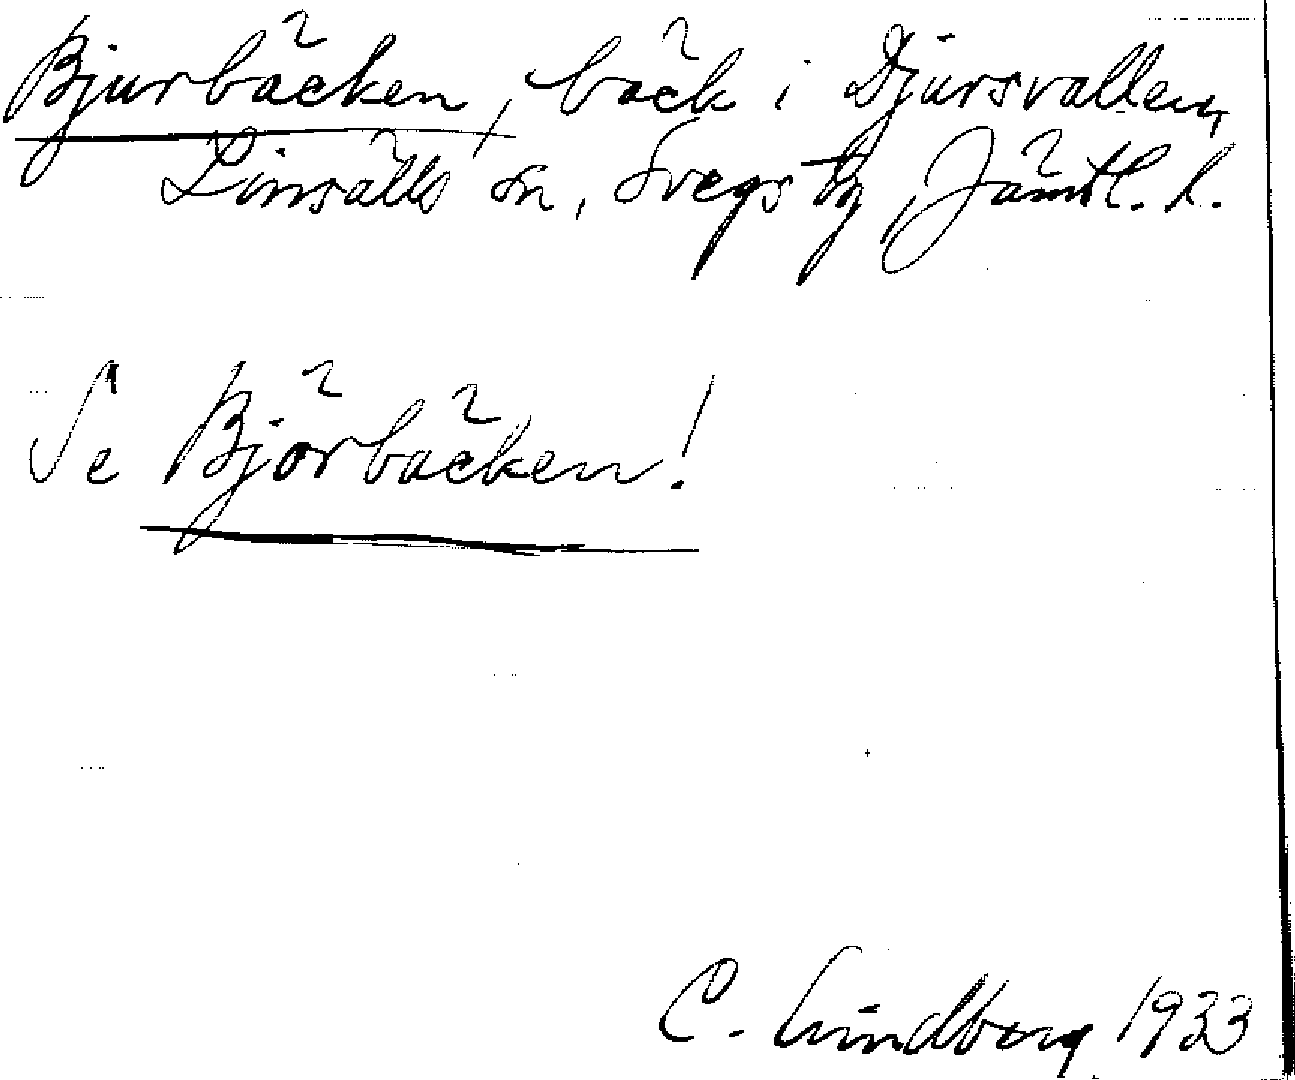 Bjurbäcken, bäck i Djursvallen,
Linsälls sn, Svegs tg, Jämtl. l.
Se Björbäcken!
C. Lindberg 1933